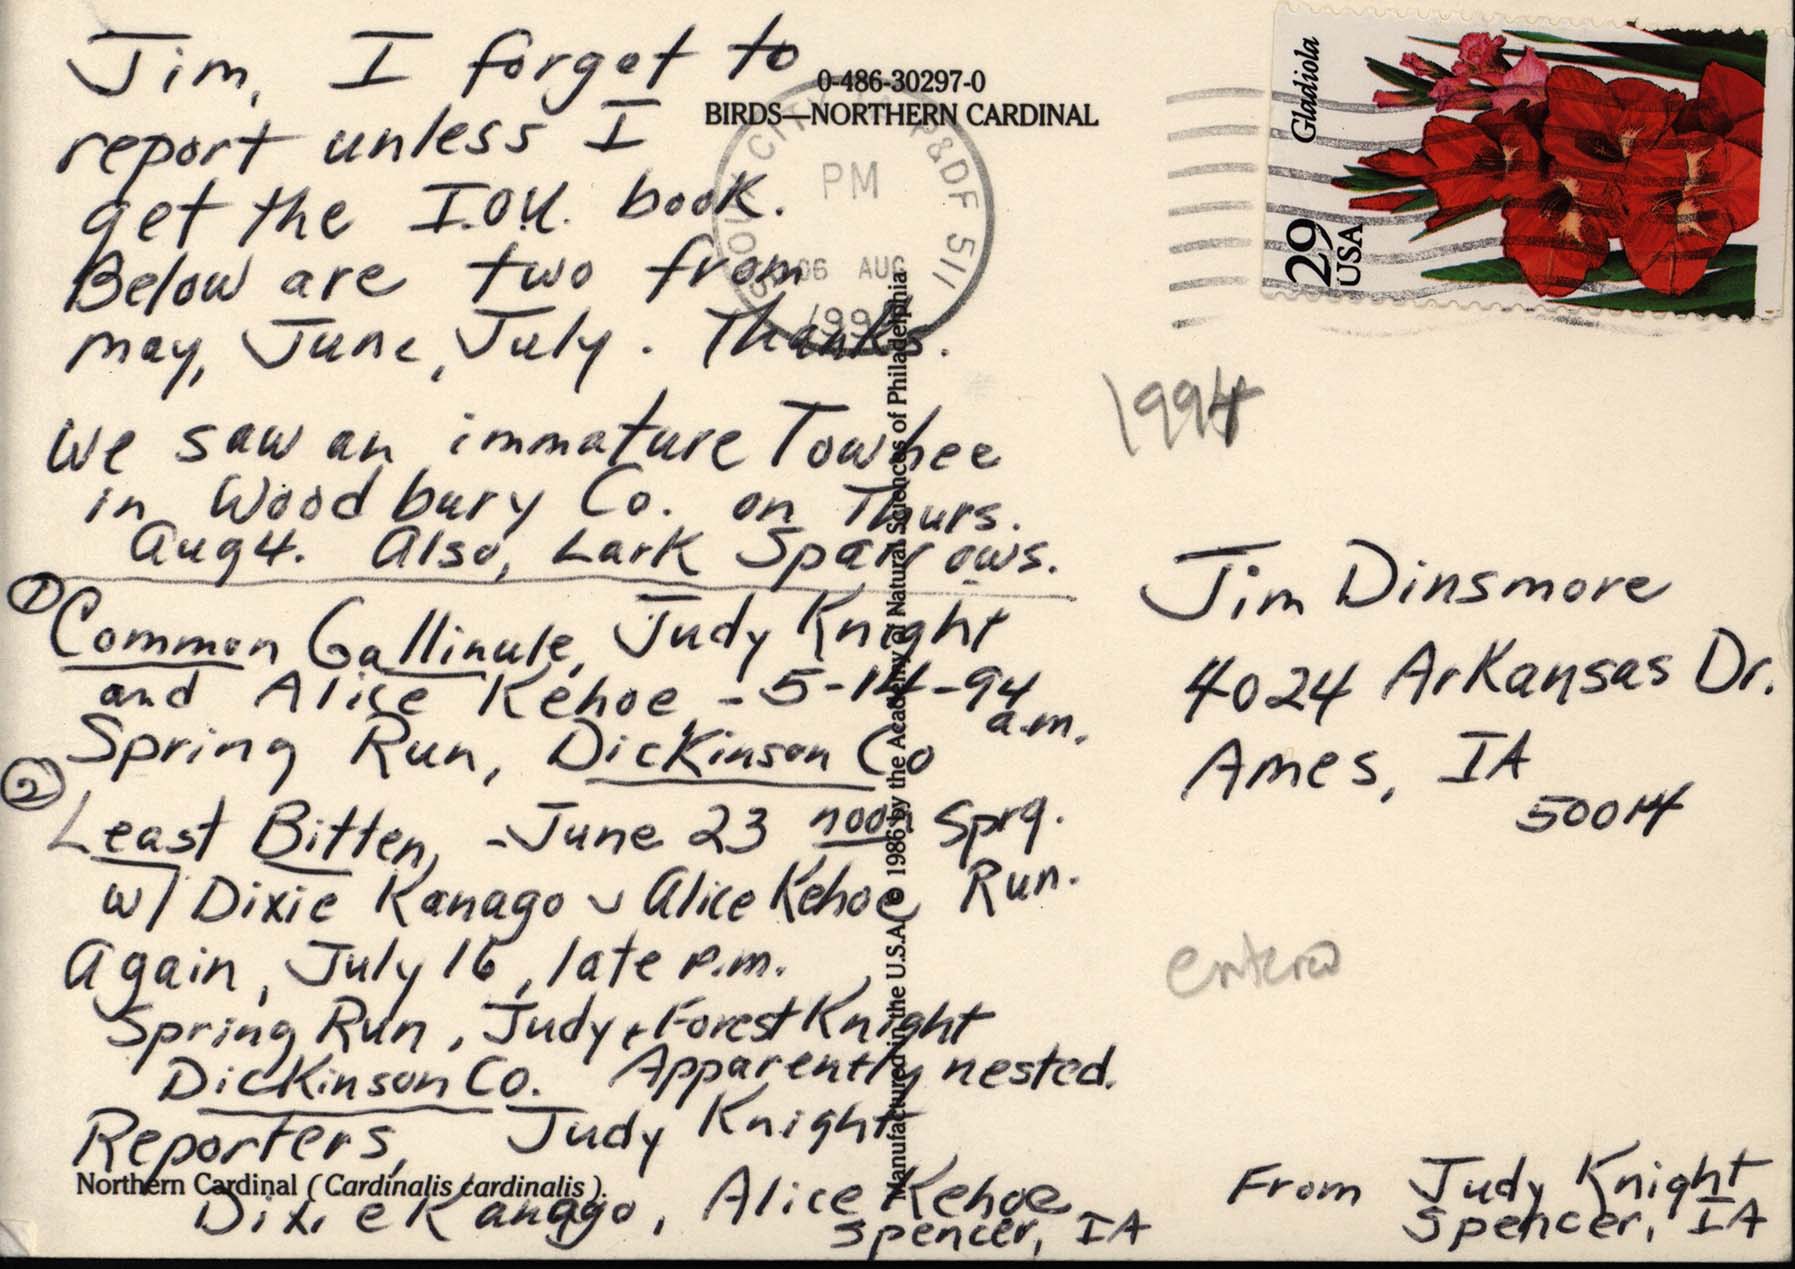 Jim, I forget to
report unless I
get the I.O.U. book.
Below are two from
May, June, July. Thanks.
We saw an immature Towhee
in Woodbury Co. on Thurs.
Aug 4. Also, Lark Sparrows.
① Common Gallinule, Judy Knight
and Alice Kehoe - 5-14-94
a.m.
Spring Run, Dickinson Co
② Least Bitten, - June 23 noon Sprg.
w/ Dixie Kanago & Alice Kehoe Run.
Again, July 16, late p.m.
Spring Run, Judy & Forest Knight
Dickinson Co. Apparently nested.
Reporters, Judy Knight
Dixie Kanago, Alice Kehoe
Spencer, IA
Northern Cardinal (Cardinalis cardinalis).
0-486-30297-0
BIRDS—NORTHERN CARDINAL
SIOUX CITY P&DF 511
PM
06 AUG
199
Manufactured in the U.S.A. © 1986 by the Academy of Natural Sciences of Philadelphia
Gladiola
29
USA
1994
Jim Dinsmore
4024 Arkansas Dr.
Ames, IA
50014
entered
From Judy Knight
Spencer, IA